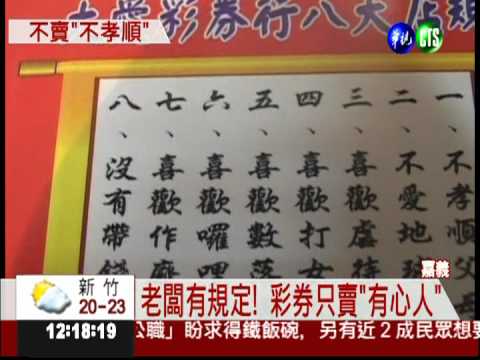 不賣"不孝順"
華視 CTS
彩券行八大店
一、不孝順父
二、不愛地球
三、喜歡虐待
四、喜歡打女
五、喜歡數落
六、喜歡囉哩
七、喜歡作
八、沒有帶錢
嘉義
新竹
20-23
老闆有規定! 彩券只賣"有心人"
12:18:19
公職」盼求得鐵飯碗，另有近2成民眾想要